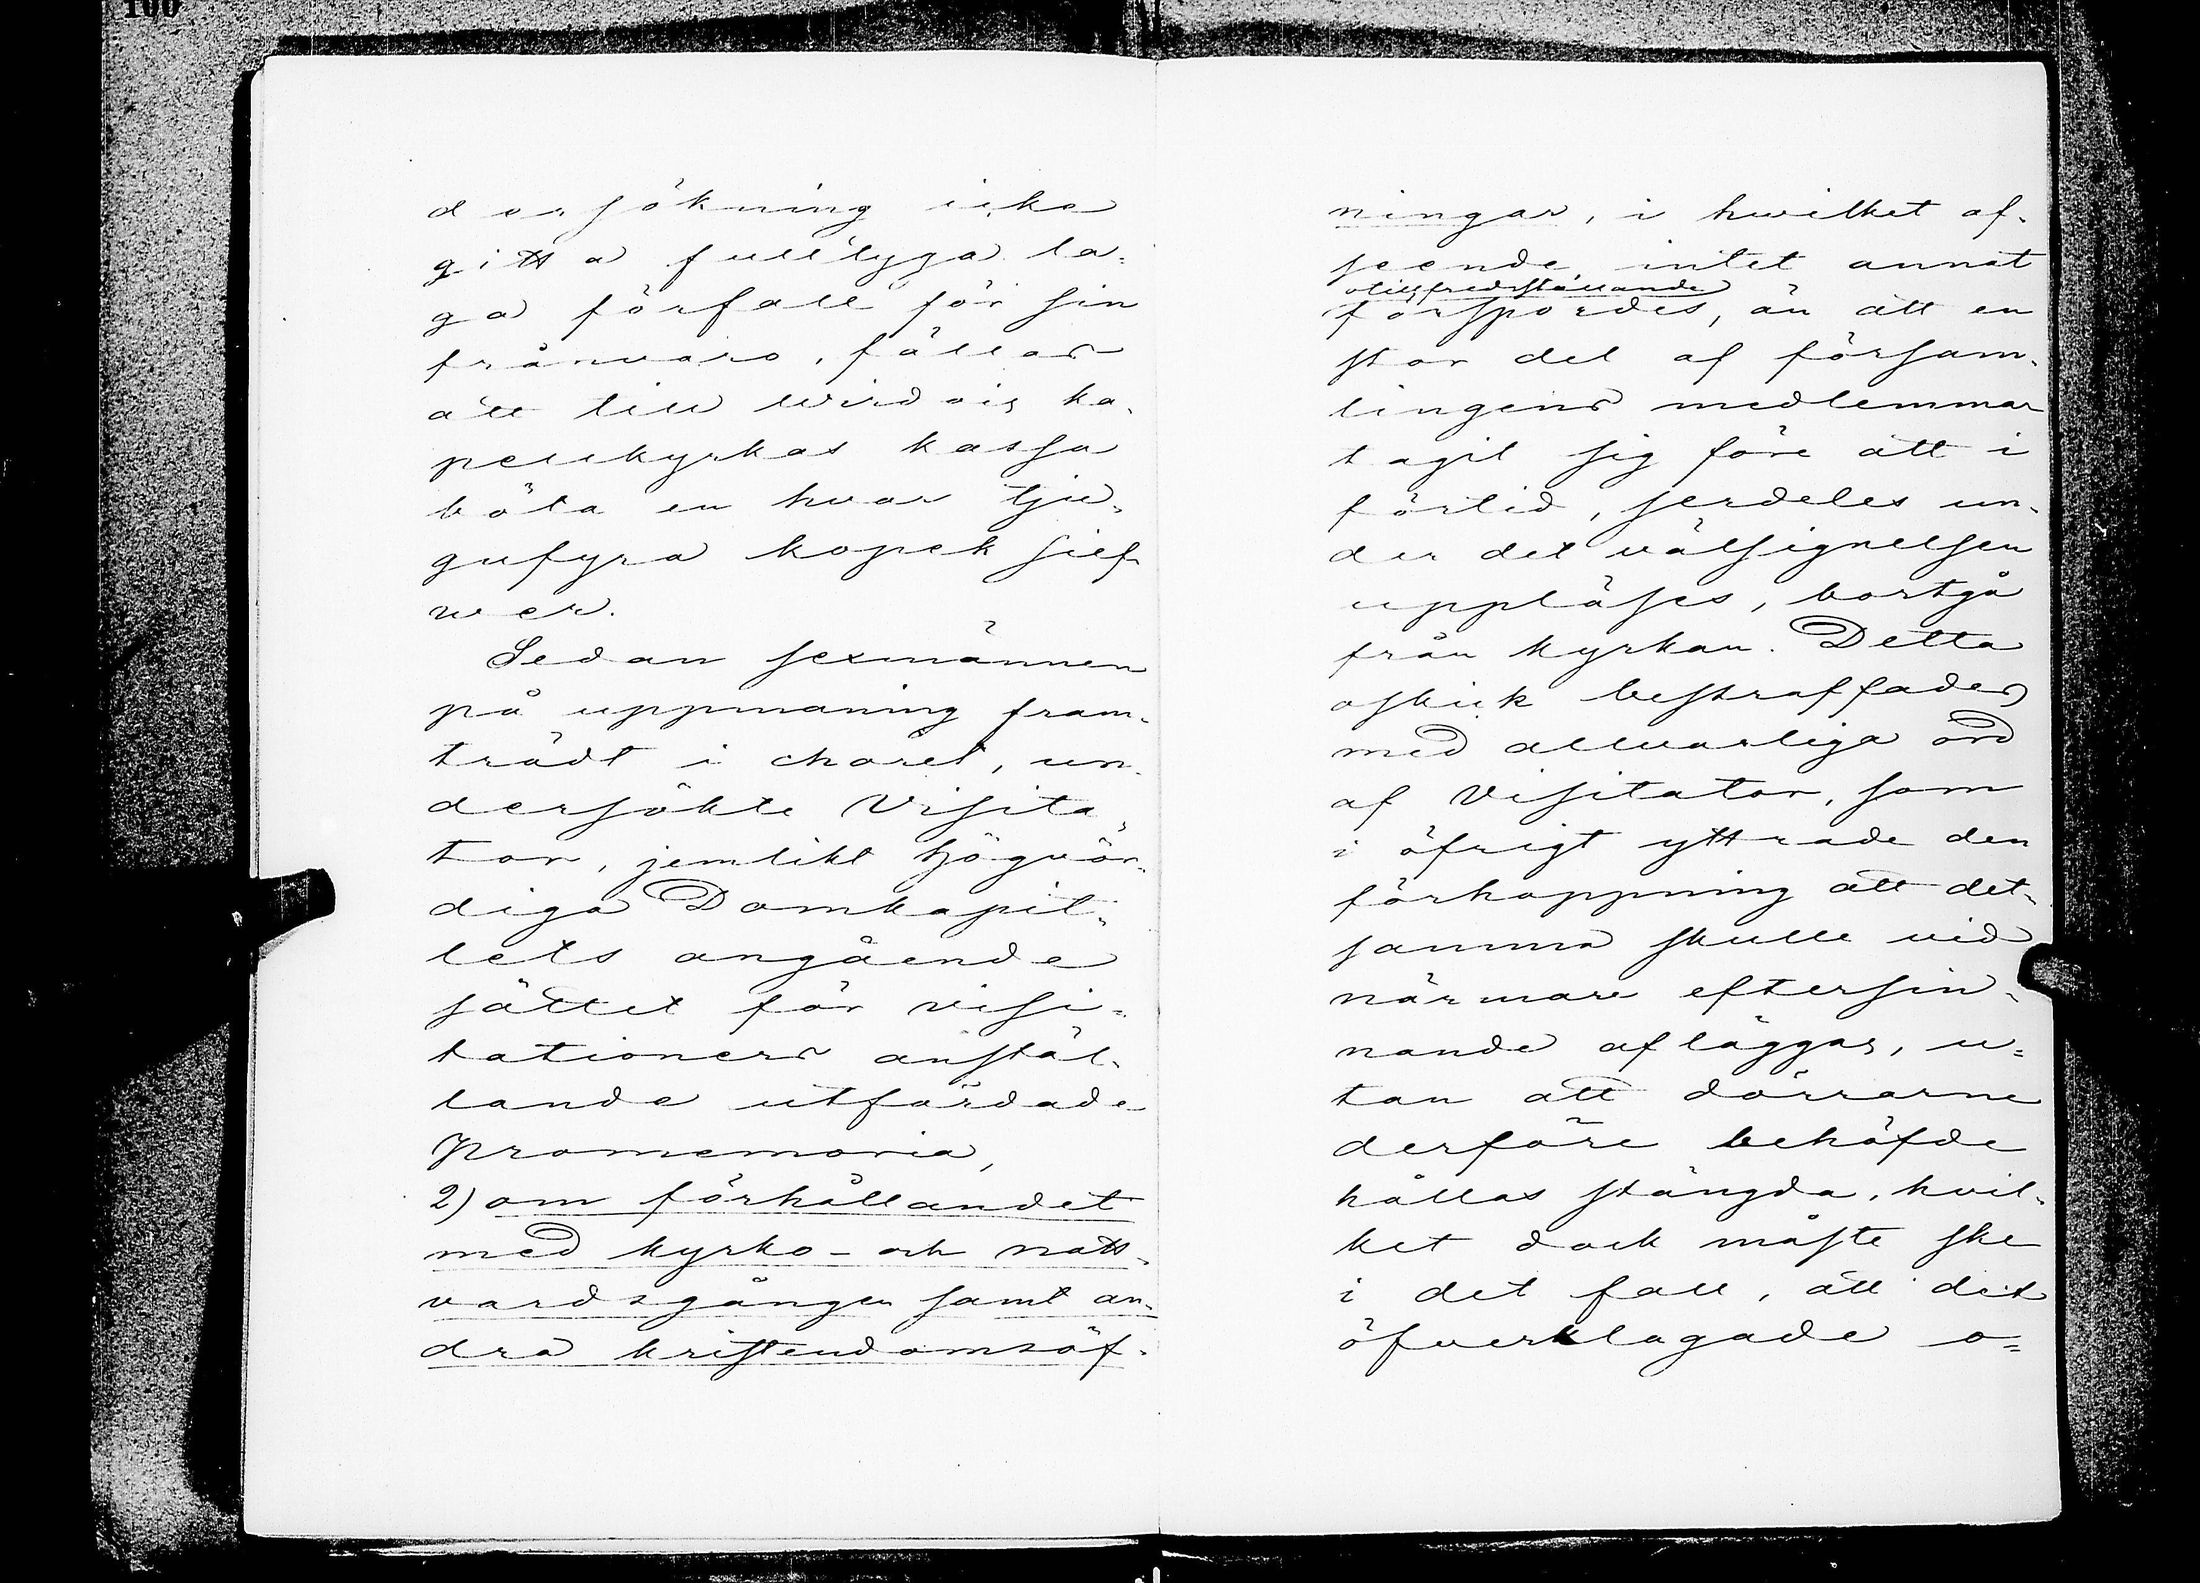 100
dersökning icke
gitta fulltyga la-
ga förfall för sin
frånvaro, fällas
att till Wirdois ka-
pellkyrkas kassa
böta en hvar tju-
gufyra kopek silf-
wer.
Sedan sexmännen
på uppmaning fram-
trädt i choret, un-
dersökte Visita-
tor, jemlikt högvör-
diga Domkapit-
lets angående
sättet för visi-
tationers anstäl-
lande utfärdade
Promemoria,
2) om förhållandet
med kyrko- och natt-
vardsgången samt an-
dra kristendomsöf-
ningar, i hwilket af-
seende, intet annat
otillfredsställande
förspordes, än att en
stor del af försam-
lingens medlemmar
tagit sig före att i
förtid, serdeles un-
der det välsignelsen
uppläses, bortgå
från kyrkan. Detta
oskick bestraffades
med allvarliga ord
af Visitator, som
i öfrigt yttrade den
förhoppning att det-
samma skulle vid
närmare eftersin-
nande afläggas, u-
tan att dörrarne
derföre behöfde
hållas stängda, hvil-
ket dock måste ske
i det fall, att det
öfverklagade o-